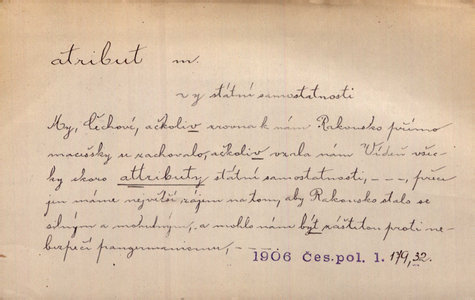 atribut m.
~ y státní samostatnosti
My, Čechové, ačkoliv zrovna k nám Rakousko přímo
macešsky se zachovalo, ačkoliv vzala nám Vídeň všec-
ky skoro attributy státní samostatnosti, – – –, přece
jen máme největší zájem na tom, aby Rakousko stalo se
silným a mohutným, a mohlo nám být záštitou proti ne-
bezpečí pangermanismu, – – –
1906 Čes. pol. 1. 179, 32.